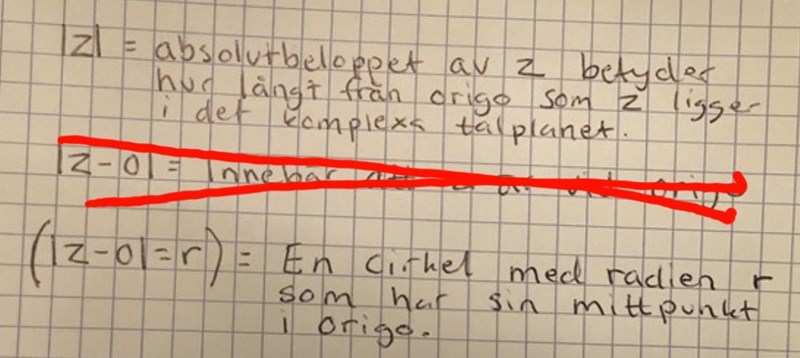 |z| = absolutbeloppet av z betyder
hur långt från origo som z ligger
i det komplexa talplanet.
|z-0| = Innebär
(|z-0|=r) = En cirkel med radien r
som har sin mittpunkt
i origo.